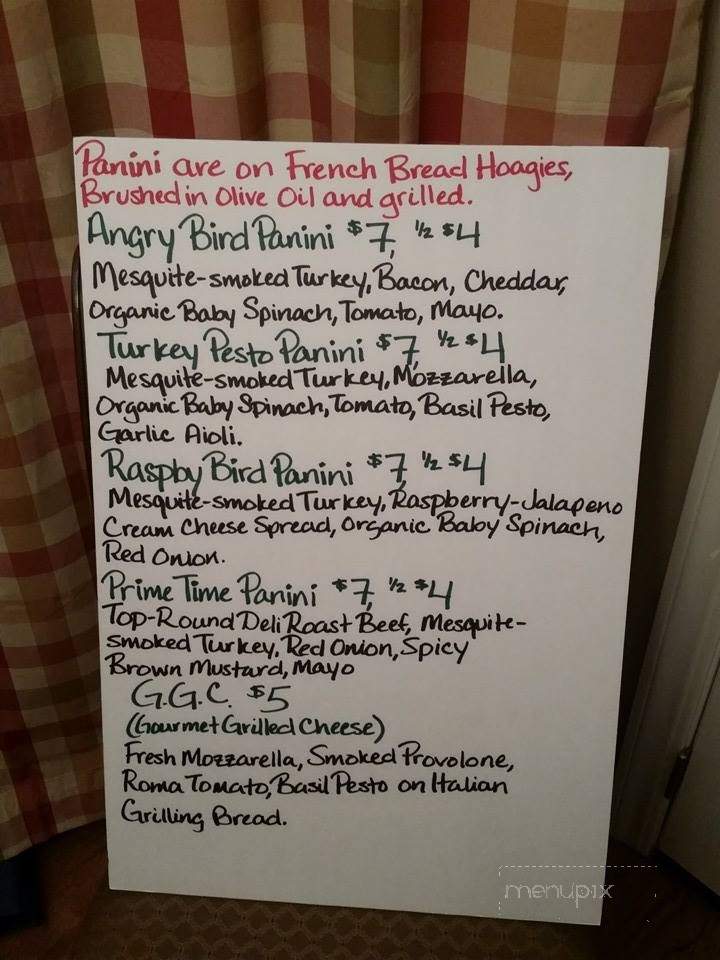 Panini are on French Bread Hoagies,
Brushed in Olive Oil and grilled.
Angry Bird Panini $7, 1/2 $4
Mesquite-smoked Turkey, Bacon, Cheddar,
Organic Baby Spinach, Tomato, Mayo.
Turkey Pesto Panini $7, 1/2 $4
Mesquite-smoked Turkey, Mozzarella,
Organic Baby Spinach, Tomato, Basil Pesto,
Garlic Aioli.
Raspby Bird Panini $7, 1/2 $4
Mesquite-smoked Turkey, Raspberry-Jalapeno
Cream Cheese Spread, Organic Baby Spinach,
Red Onion.
Prime Time Panini $7, 1/2 $4
Top-Round Deli Roast Beef, Mesquite-
smoked Turkey, Red Onion, Spicy
Brown Mustard, Mayo
G.G.C. $5
(Gourmet Grilled Cheese)
Fresh Mozzarella, Smoked Provolone,
Roma Tomato, Basil Pesto on Italian
Grilling Bread.
menupix